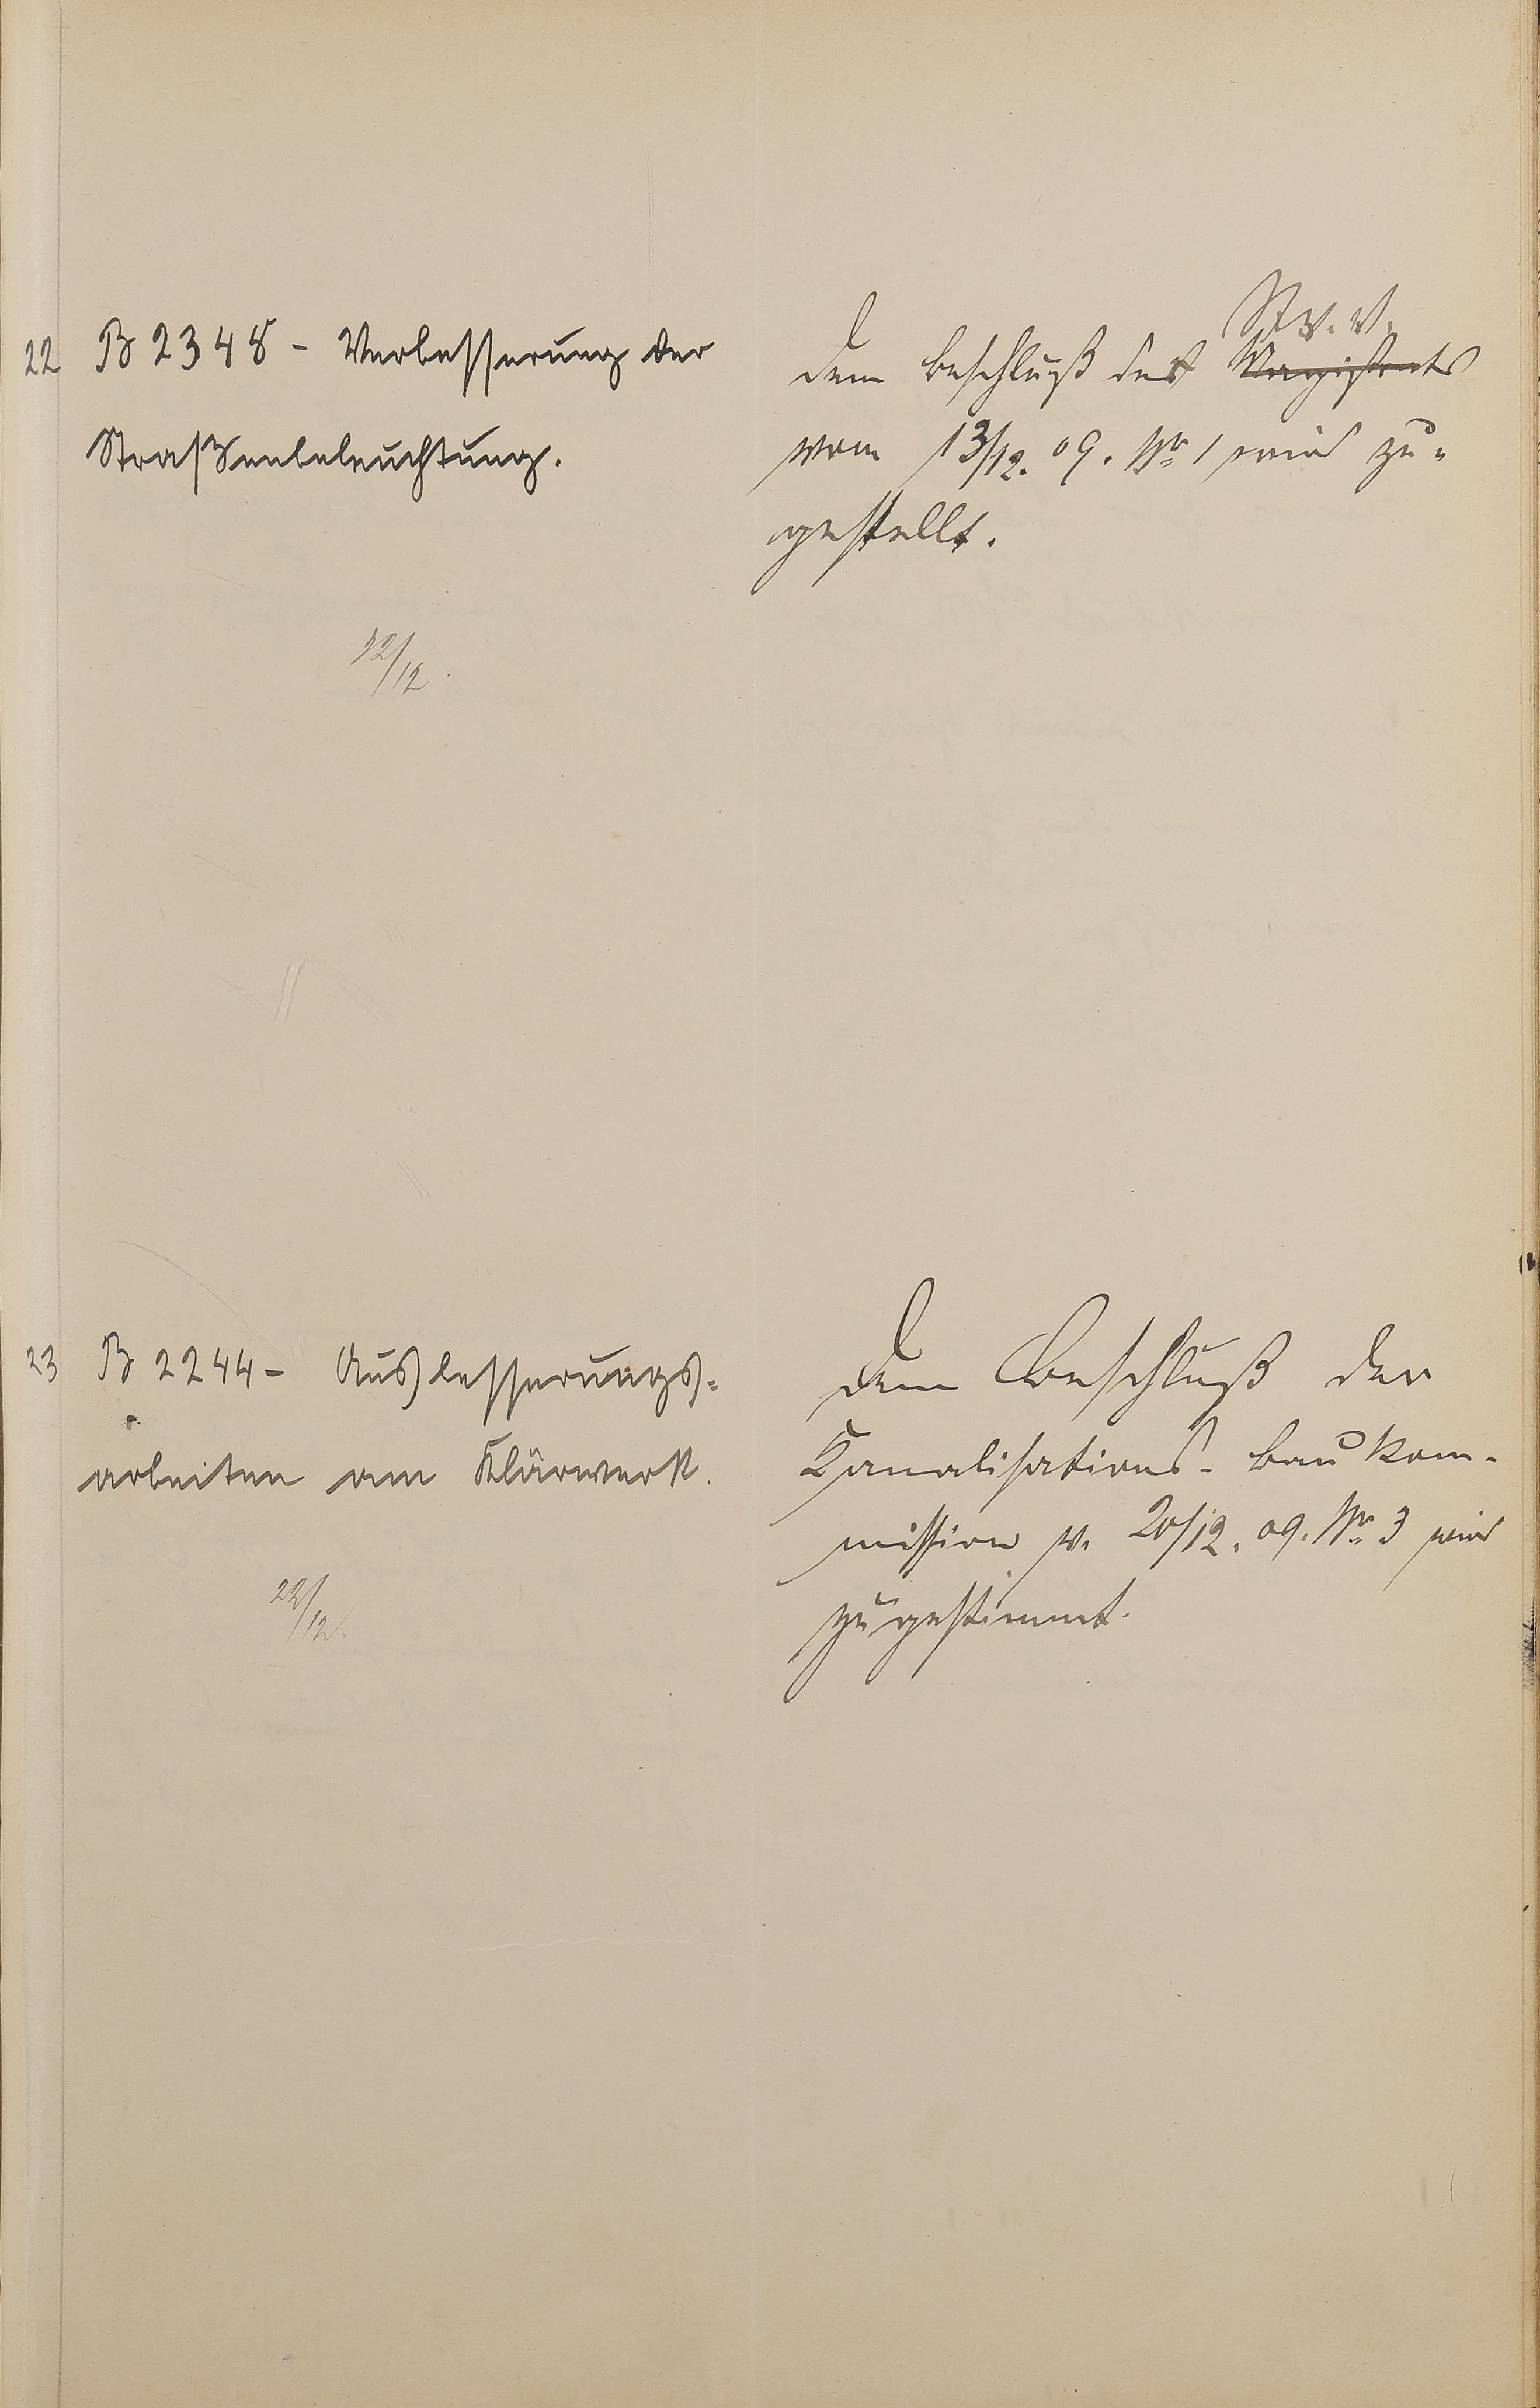 22 B 2348 - Verbesserung der
Straßenbeleuchtung.
22/12.
St. V. V.
Dem Beschluß der Magistrats
vom 13/12. 09. Nr 1 wird zu-
gestellt.
23 B 2244 - Ausbesserungs-
arbeiten am Klärwerk.
22/12.
Dem Beschluß der
Kanalisations-Baukom-
mission v. 20/12. 09. Nr 3 wird
zugestimmt.